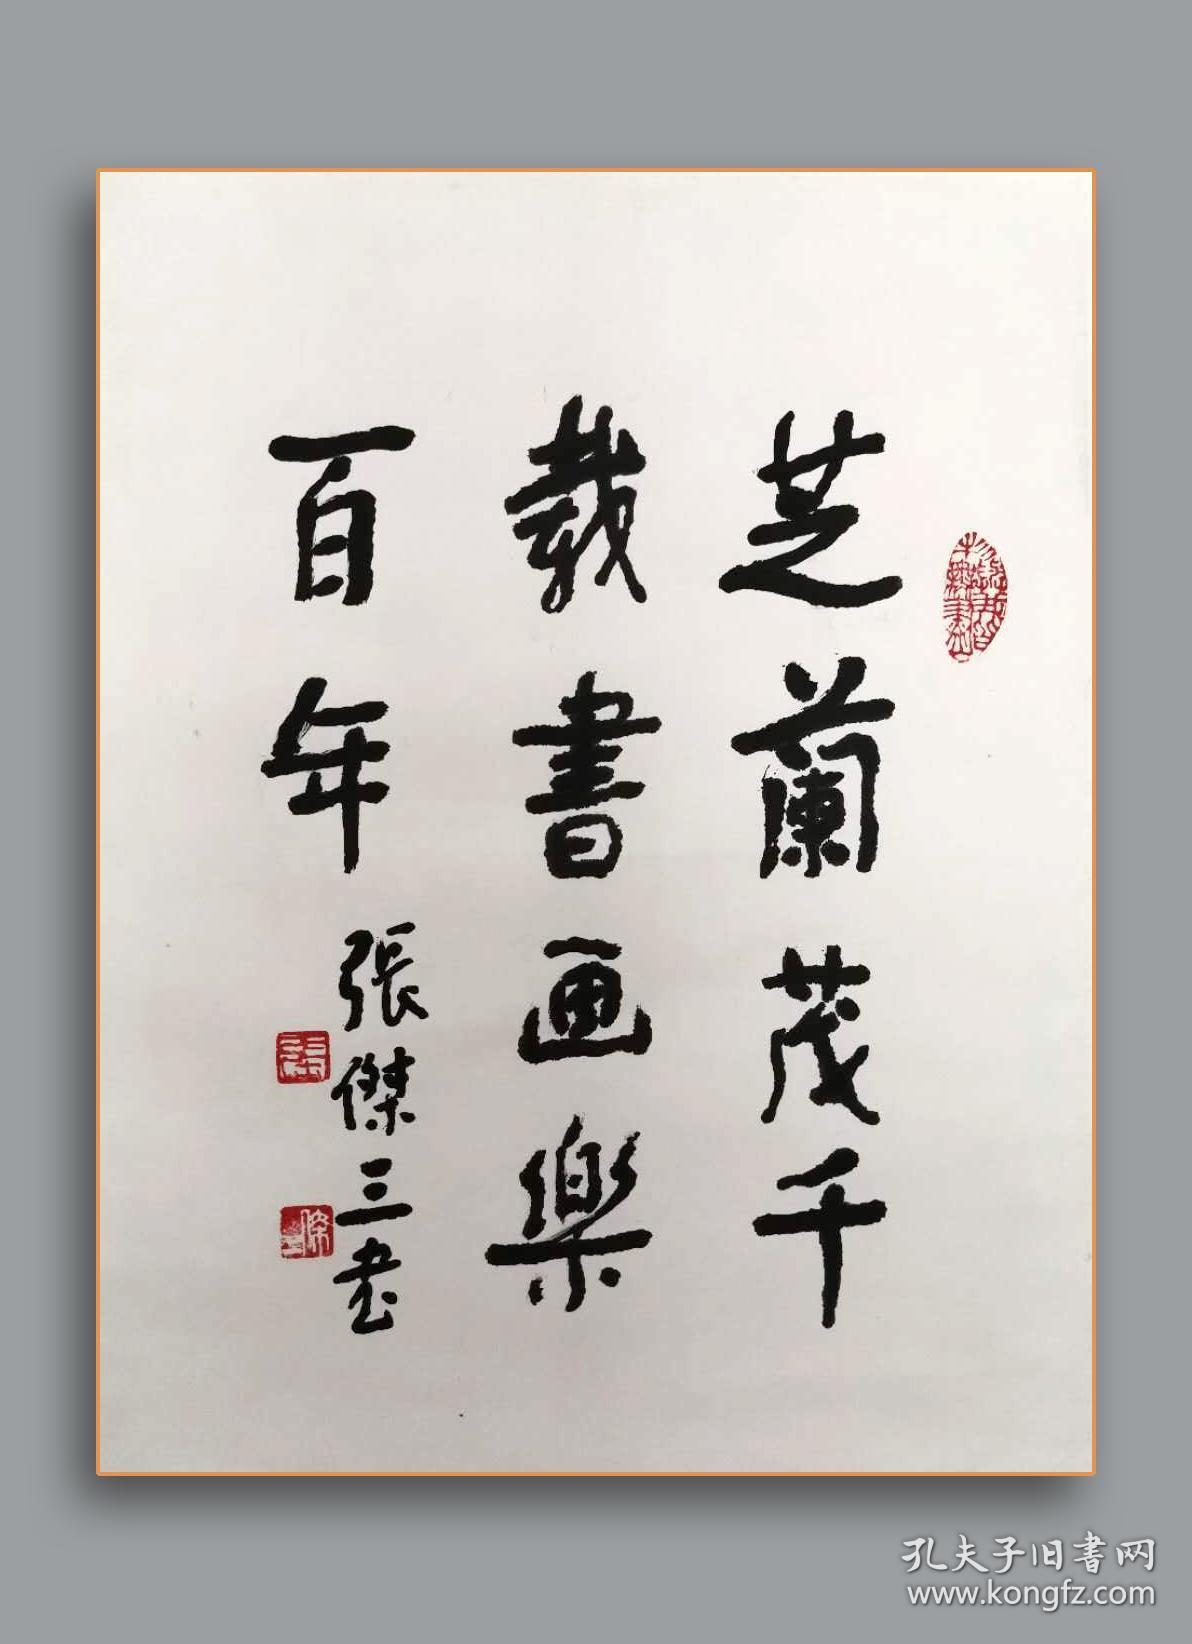 芝蘭茂千
載書画樂
百年
張傑三书
孔夫子旧書网
www.kongfz.com